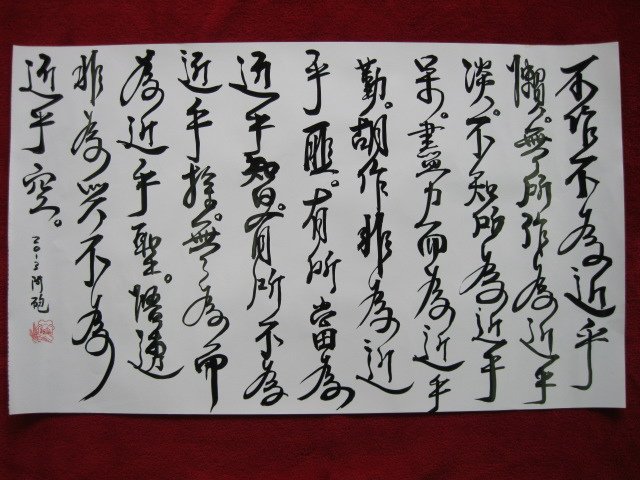 不作不為近乎
懶。無所作為近乎
淡。不知所為近乎
呆。盡力而為近乎
勤。胡作非為近
乎匪。有所當為
近乎智。有所不為
近乎捨。無為而
為近乎聖。悟通
非為與不為
近乎空。
2013 阿砲